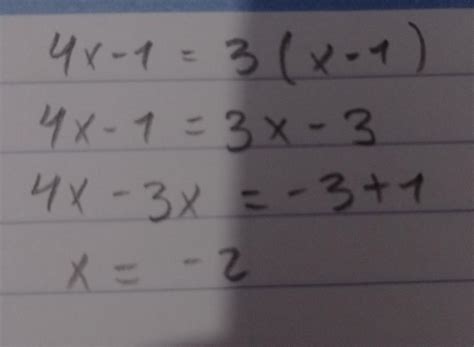 4x-1 = 3(x-1)
4x-1 = 3x-3
4x-3x = -3+1
x = -2